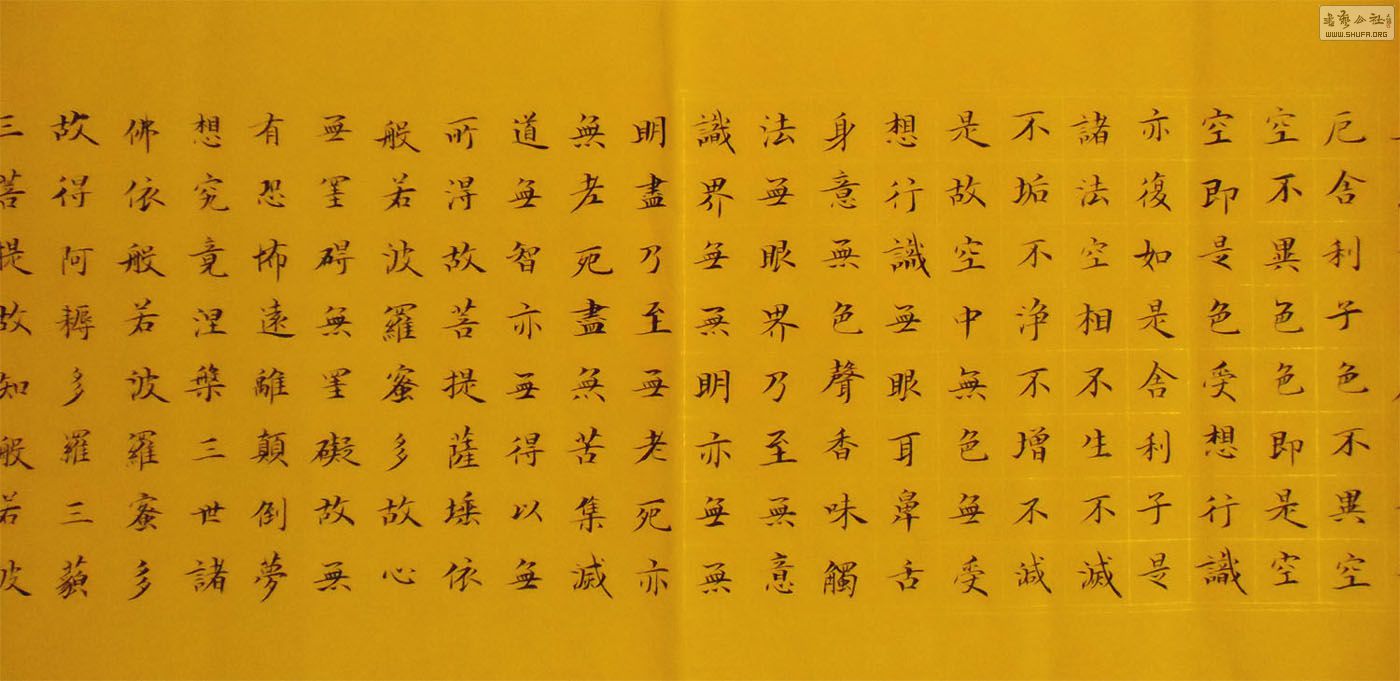 厄舍利子色不異空
空不異色色即是空
空即是色受想行識
亦復如是舍利子是
諸法空相不生不滅
不垢不淨不增不減
是故空中無色無受
想行識無眼耳鼻舌
身意無色聲香味觸
法無眼界乃至無意
識界無無明亦無無
明盡乃至無老死亦
無老死盡無苦集滅
道無智亦無得以無
所得故菩提薩埵依
般若波羅蜜多故心
無罣碍無罣礙故無
有恐怖遠離顛倒夢
想究竟涅槃三世諸
佛依般若波羅蜜多
故得阿耨多羅三藐
三菩提故知般若波
書藝公社
WWW.SHUFA.ORG